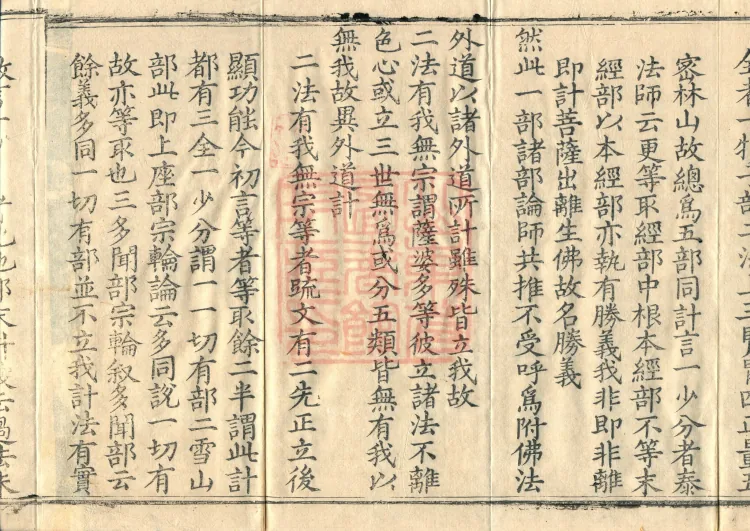 密林山故總爲五部同計言一少分者泰
法師云更等取經部中根本經部不等末
經部以本經部亦執有勝義我非即非離
即計菩薩出離生佛故名勝義
然此一部諸部論師共推不受呼爲附佛法
外道以諸外道所計雖殊皆立我故
二法有我無宗謂薩婆多等彼立諸法不離
色心或立三世無爲或分五類皆無有我以
無我故異外道計
二法有我無宗等者疏文有二先正立後
顯功能今初言等者等取餘二半謂此計
都有三全一少分謂一一切有部二雪山
部此即上座部宗輪論云多同說一切有
故亦等取也三多聞部宗輪叙多聞部云
餘義多同一切有部並不立我計法有實